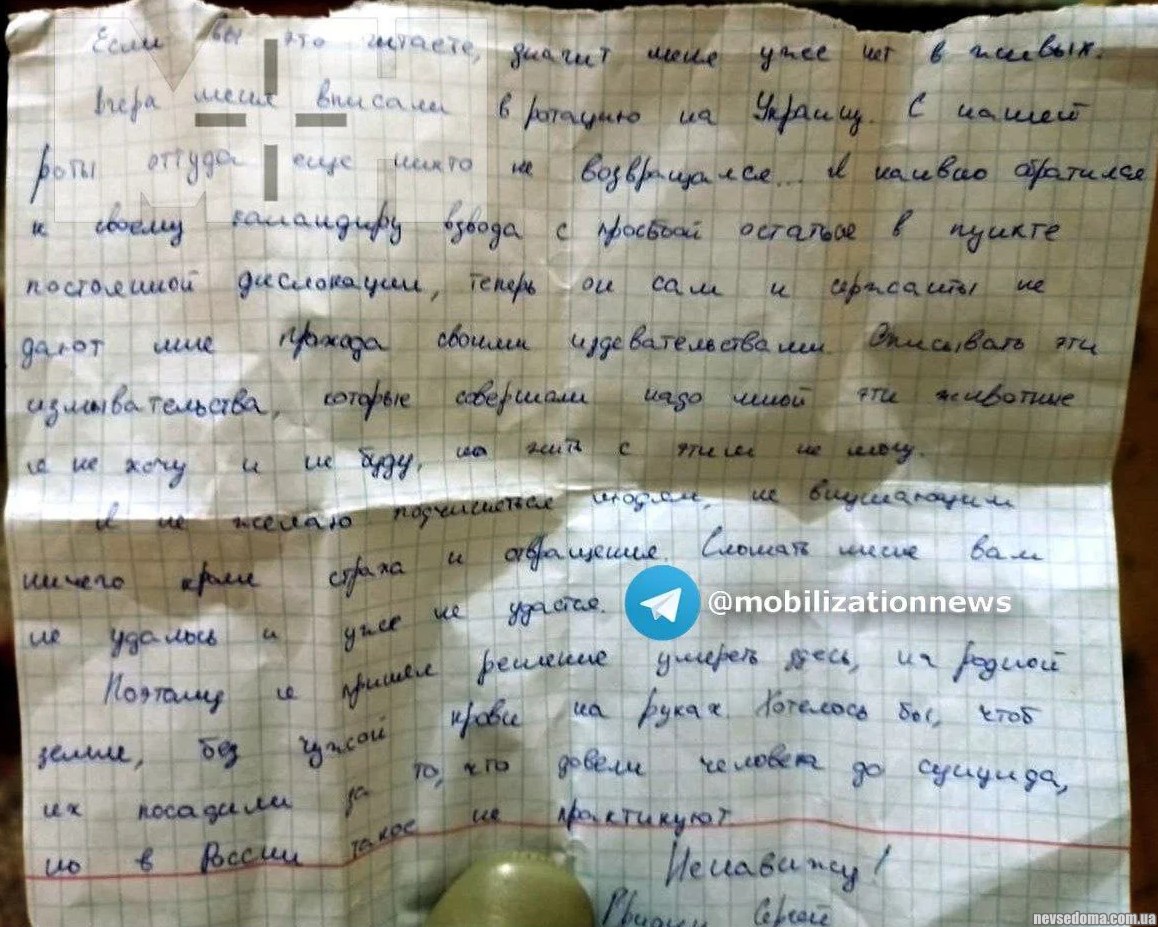 Если вы это читаете, значит меня уже нет в живых.
Вчера меня вписали в ротацию на Украину. С нашей
роты оттуда еще никто не возвращался... Я наивно обратился
к своему командиру взвода с просьбой остаться в пункте
постоянной дислокации, теперь он сам и сержанты не
дают мне прохода своими издевательствами. Описывать эти
измывательства, которые совершали надо мной эти животные
я не хочу и не буду, но жить с этим не могу.
Я не желаю подчиняться людям, не внушающим
ничего кроме страха и отвращения. Сломать меня вам
не удалось и уже не удастся.
@mobilizationnews
Поэтому я пришел решение умереть здесь, на родной
земле, без чужой крови на руках. Хотелось бы, чтоб
их посадили за то, что довели человека до суицида,
но в России такое не практикуют
Ненавижу!
Сергей
nevsedoma.com.ua